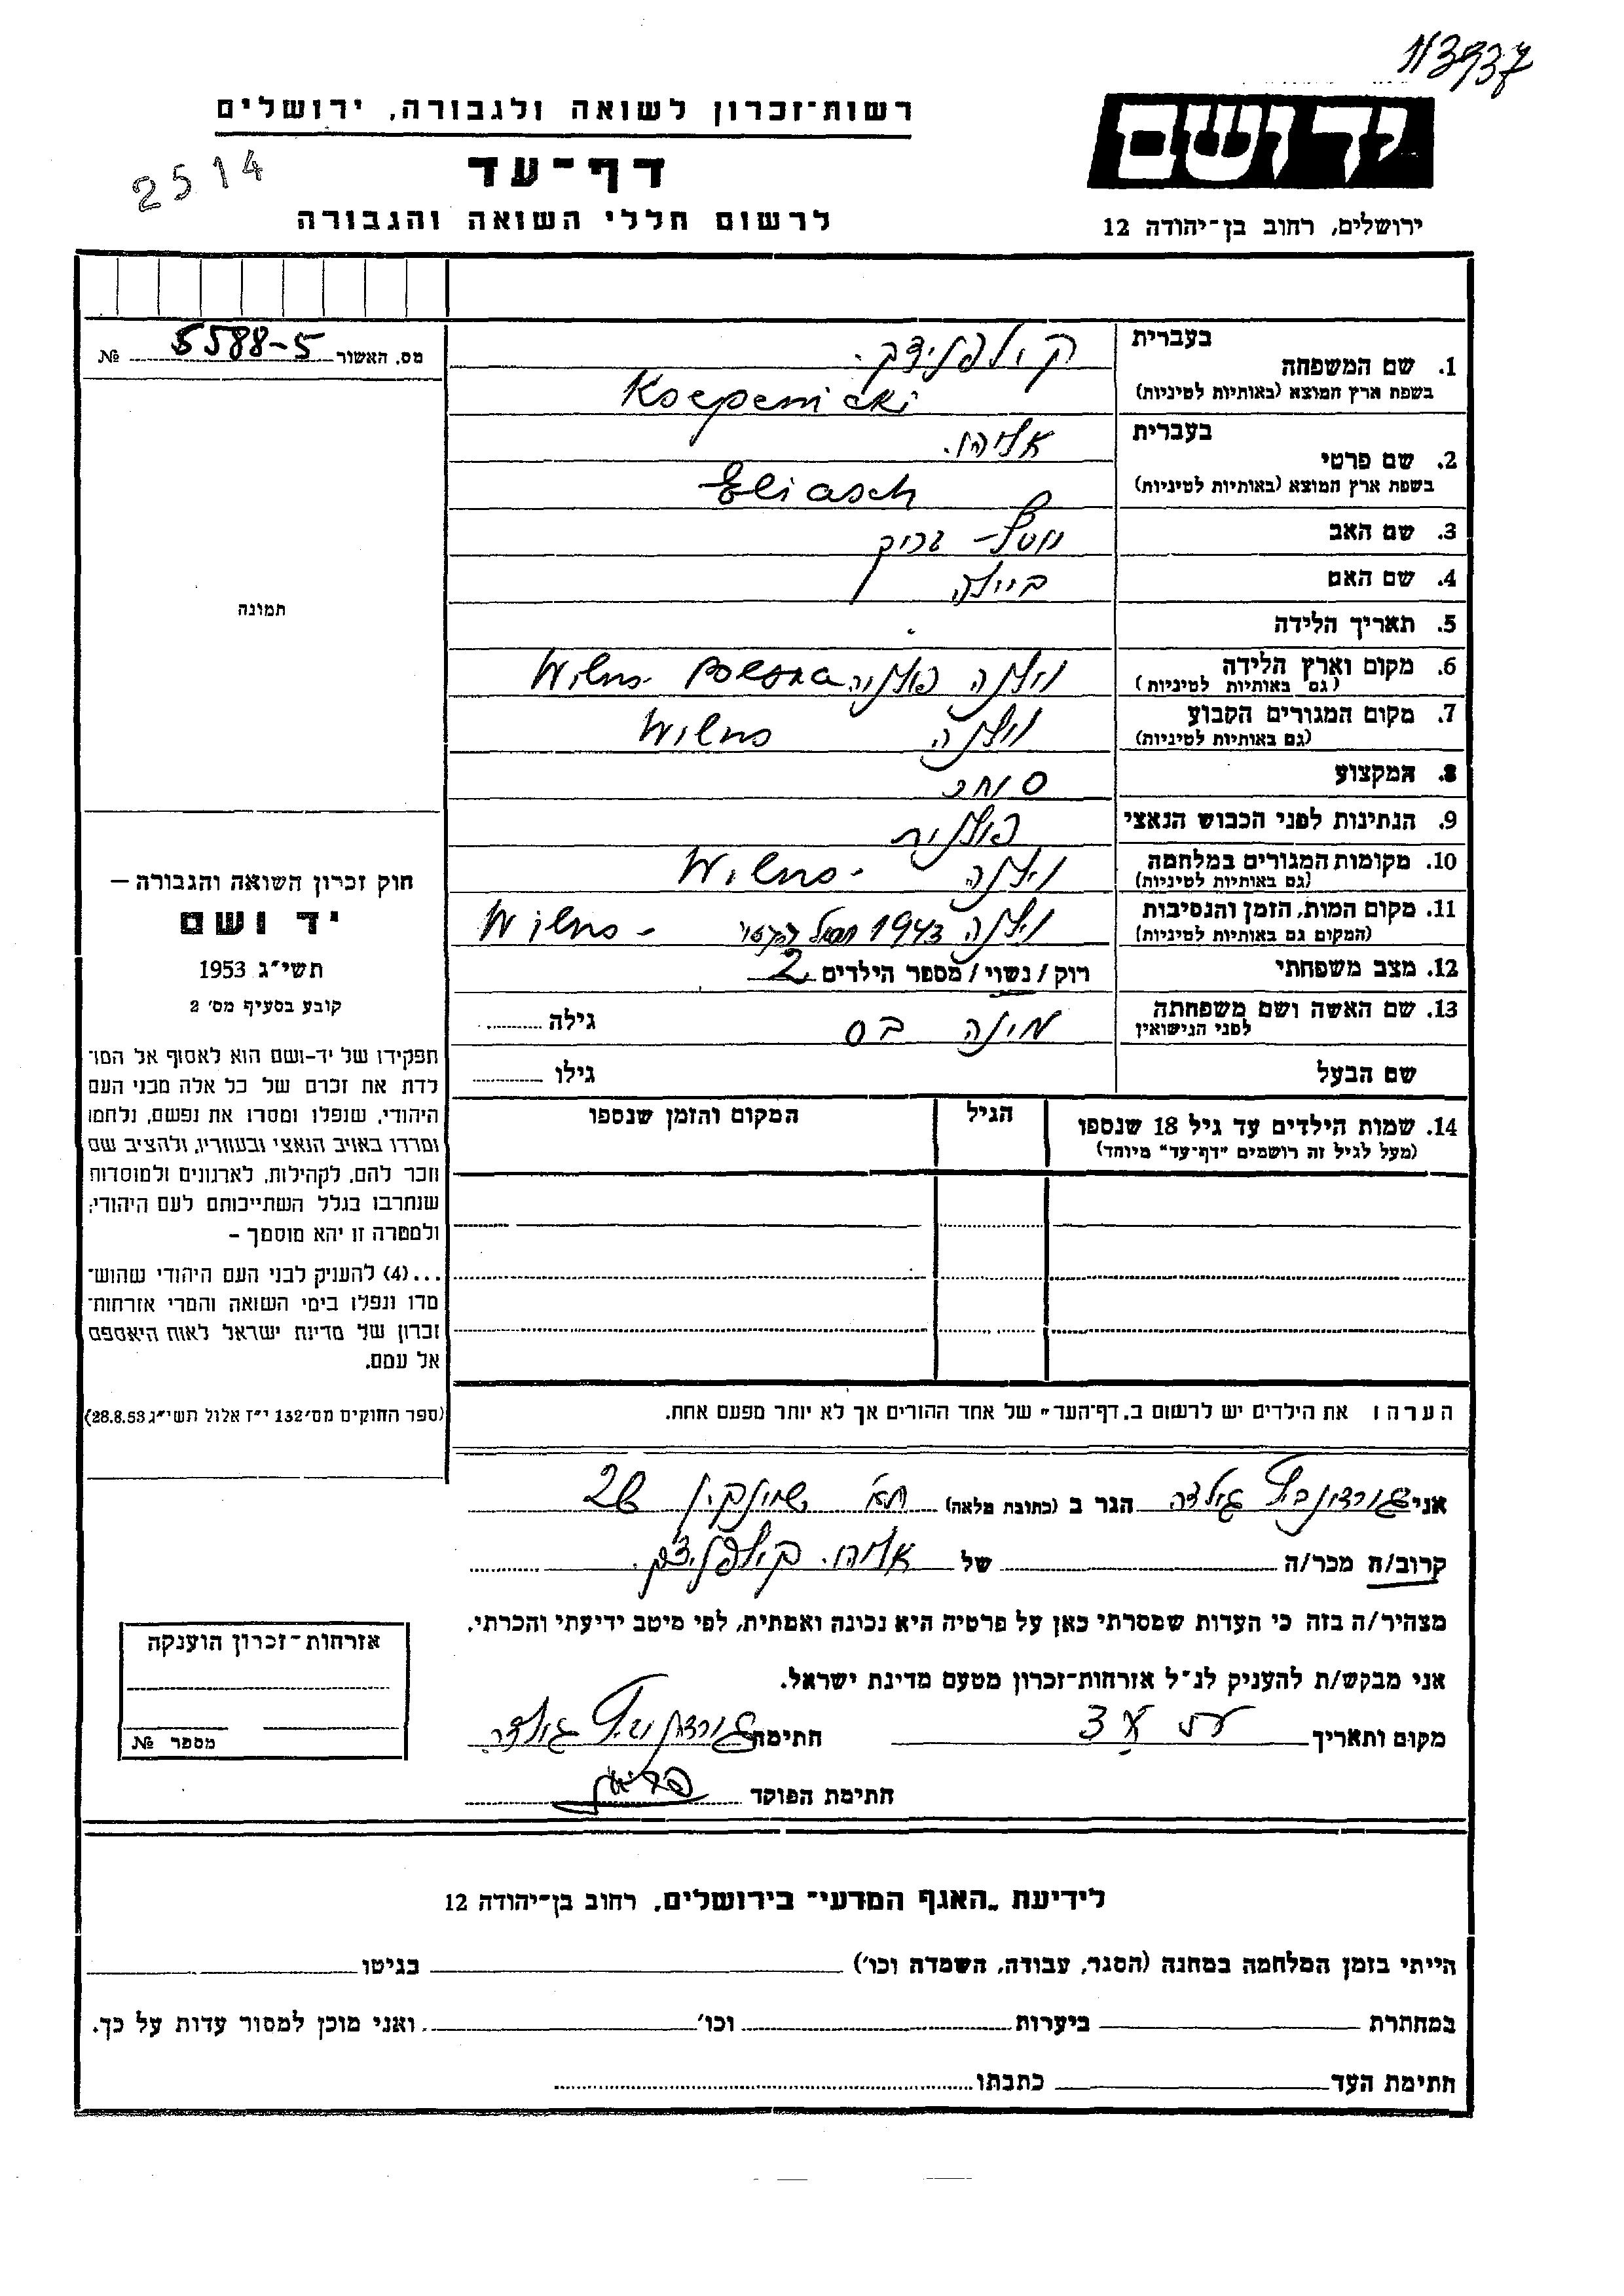 113937
רשות־זכרון לשואה ולגבורה, ירושלים
יד ושם
דף־עד
2514
לרשום חללי השואה והגבורה
ירושלים, רחוב בן־יהודה 12
מס. האשור 5588-5 №
תמונה
חוק זכרון השואה והגבורה —
יד ושם
תשי״ג 1953
קובע בסעיף מס׳ 2
תפקידו של יד-ושם הוא לאסוף אל המו־
לדת את זכרם של כל אלה מבני העם
היהודי, שנפלו ומסרו את נפשם, נלחמו
ומרדו באויב הנאצי ובעוזריו, ולהציב שם
וזכר להם, לקהילות, לארגונים ולמוסדות
שנחרבו בגלל השתייכותם לעם היהודי;
ולמטרה זו יהא מוסמך –
...(4) להעניק לבני העם היהודי שהוש־
מדו ונפלו בימי השואה והמרי אזרחות־
זכרון של מדינת ישראל לאות היאספם
אל עמם.
(ספר החוקים מס׳ 132 י״ז אלול תשי״ג 28.8.53)
1. שם המשפחה
בעברית
בשפת ארץ המוצא (באותיות לטיניות)
2. שם פרטי
בעברית אליהו.
בשפת ארץ המוצא (באותיות לטיניות) Eliasch
3. שם האב
4. שם האם ביילה
5. תאריך הלידה
6. מקום וארץ הלידה וילנה פולניה Wilno - Polska
(גם באותיות לטיניות)
7. מקום המגורים הקבוע וילנה Wilno
(גם באותיות לטיניות)
8. המקצוע סוחר
9. הנתינות לפני הכבוש הנאצי פולנית
10. מקומות המגורים במלחמה וילנה Wilno -
(גם באותיות לטיניות)
11. מקום המות, הזמן והנסיבות וילנה 1943 - Wilno
(המקום גם באותיות לטיניות)
12. מצב משפחתי רוק / נשוי / מספר הילדים 2
13. שם האשה ושם משפחתה
לפני הנישואין
מינה בס גילה
שם הבעל גילו
14. שמות הילדים עד גיל 18 שנספו
(מעל לגיל זה רושמים "דף־עד" מיוחד)
הגיל
המקום והזמן שנספו
הערה: את הילדים יש לרשום ב„דף־העד״ של אחד ההורים אך לא יותר מפעם אחת.
אני הגר ב (כתובת מלאה) ת״א שינקין 28
קרוב/ה מכר/ה של
מצהיר/ה בזה כי העדות שמסרתי כאן על פרטיה היא נכונה ואמתית, לפי מיטב ידיעתי והכרתי.
אני מבקש/ת להעניק לנ״ל אזרחות־זכרון מטעם מדינת ישראל.
מקום ותאריך חתימה
חתימת הפוקד
אזרחות־זכרון הוענקה
מספר №
לידיעת „האגף המדעי״ בירושלים, רחוב בן־יהודה 12
הייתי בזמן המלחמה במחנה (הסגר, עבודה, השמדה וכו׳) בגיטו
במחתרת ביערות וכו׳ ואני מוכן למסור עדות על כך.
חתימת העד כתבתו